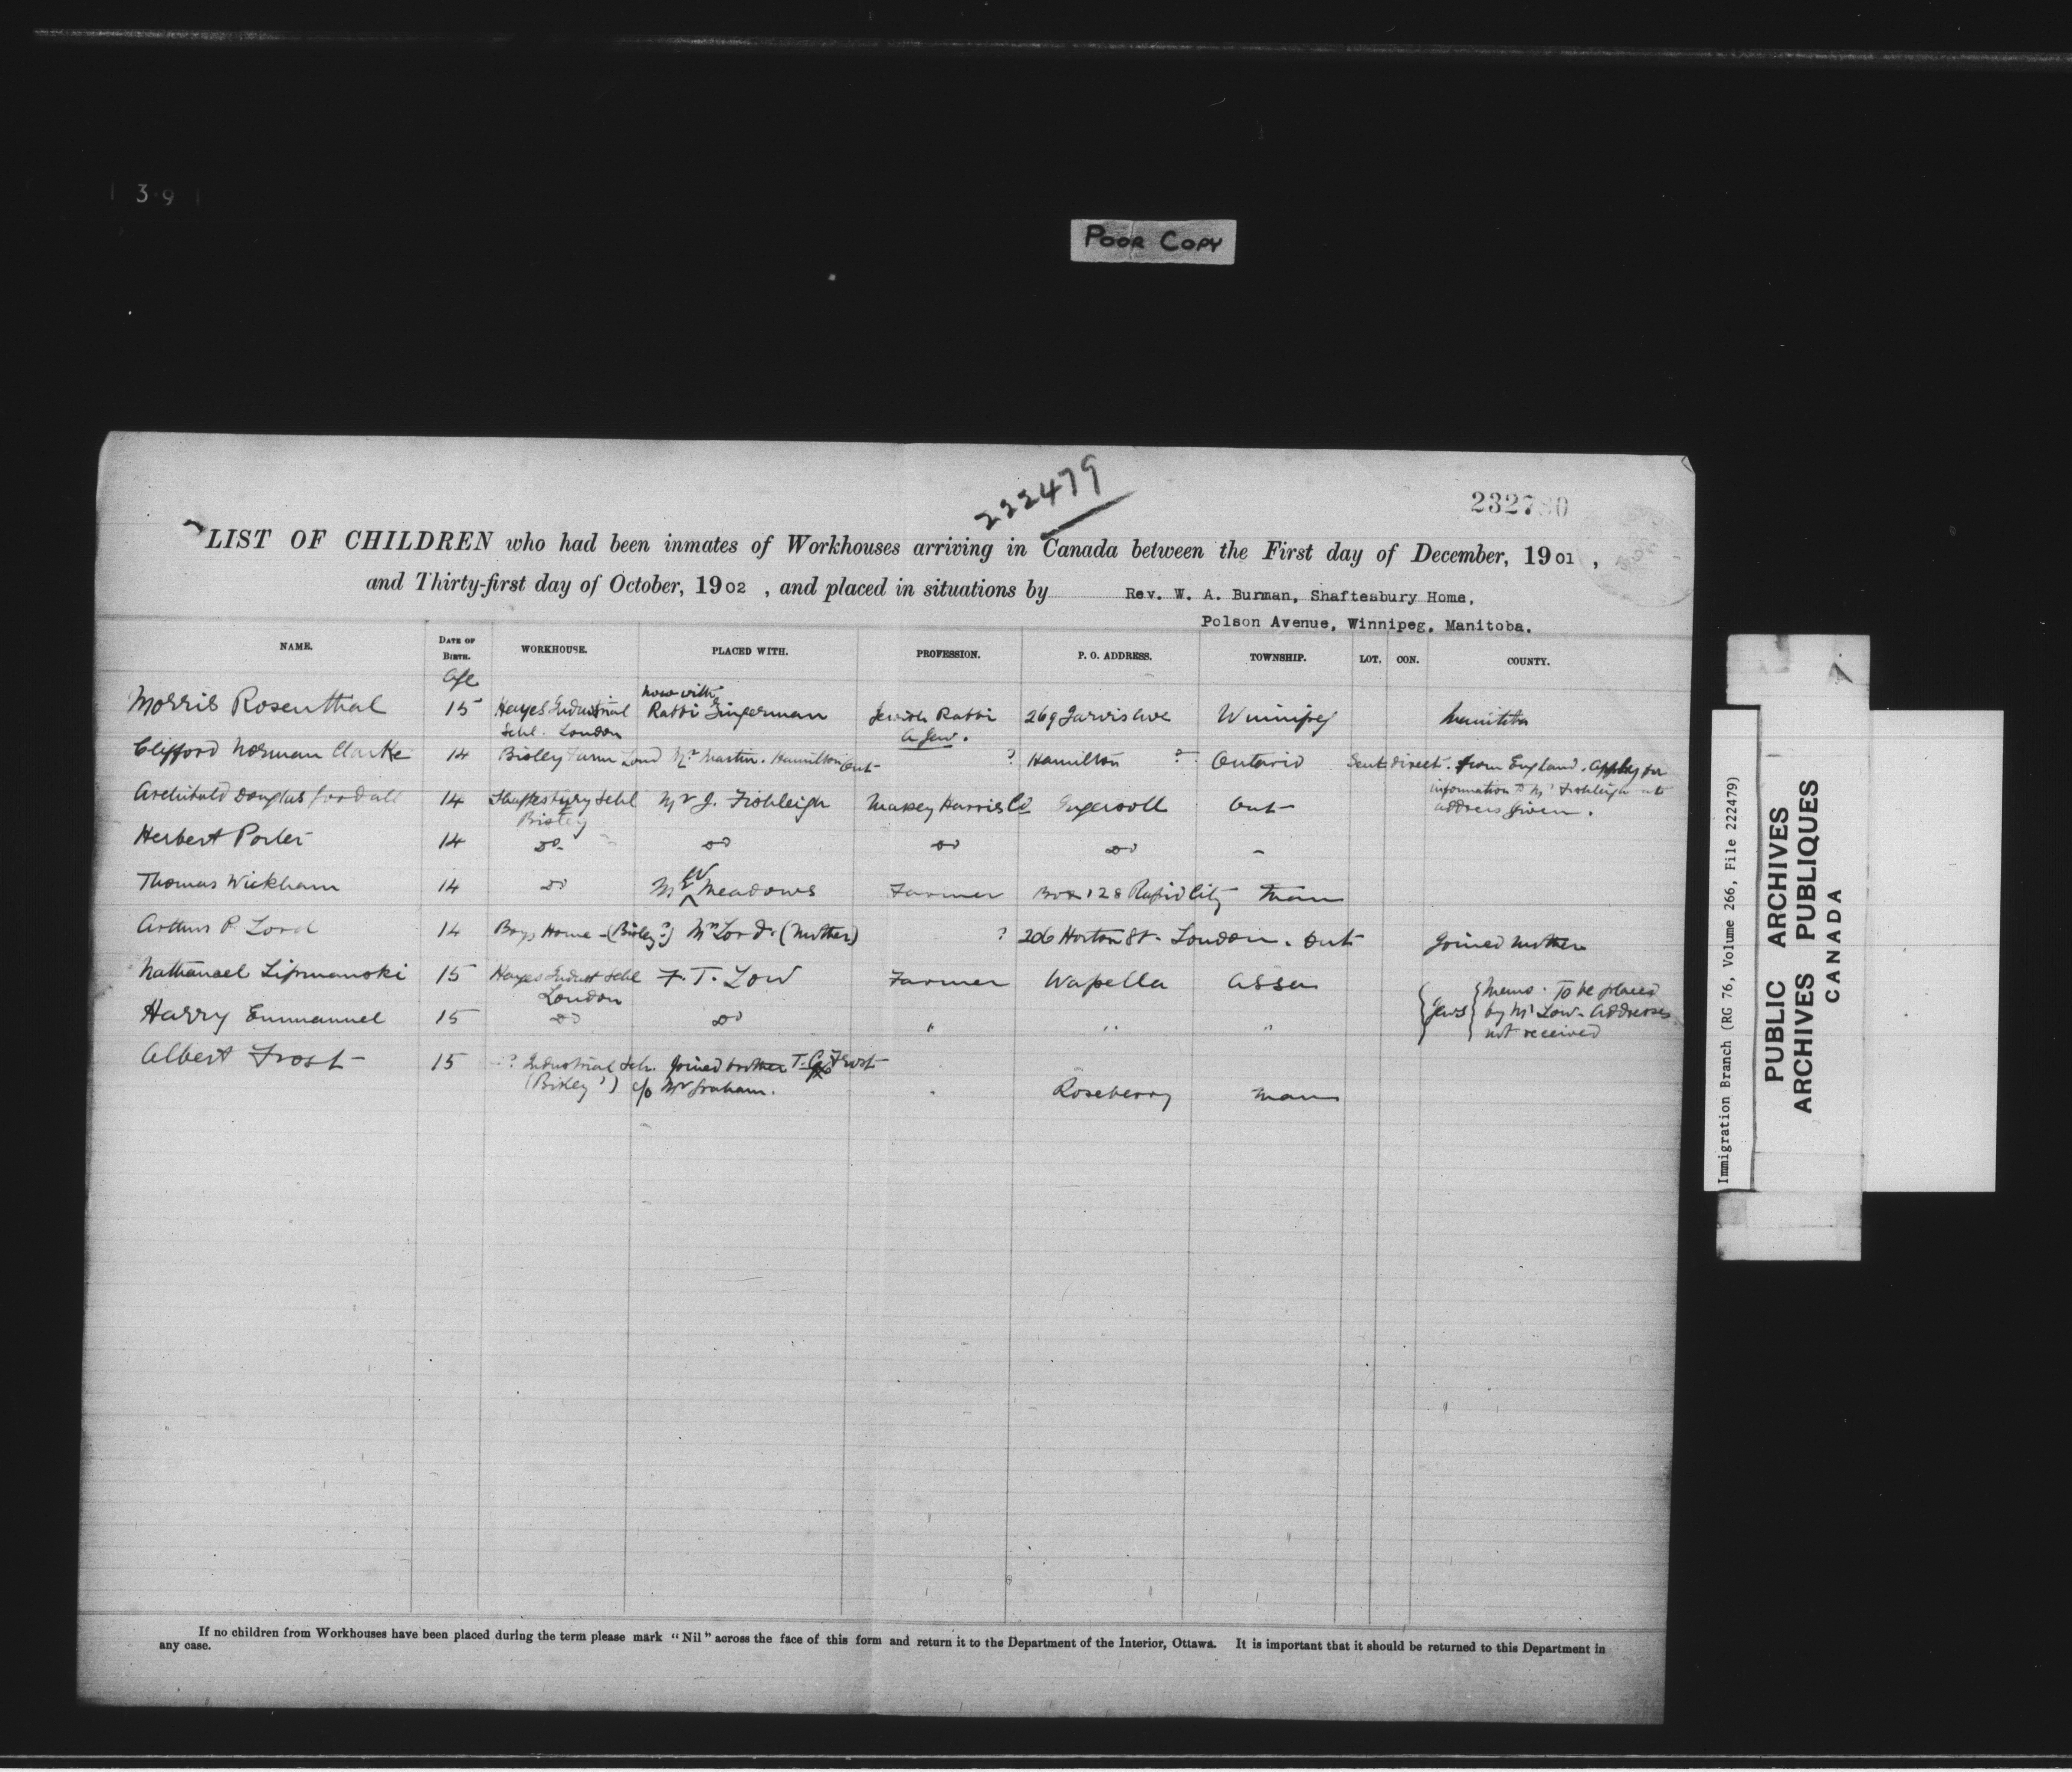 39
POOR COPY
222479
232780
LIST OF CHILDREN who had been inmates of Workhouses arriving in Canada between the First day of December, 1901,
and Thirty-first day of October, 1902, and placed in situations by Rev. W. A. Burman, Shaftesbury Home,
Polson Avenue, Winnipeg, Manitoba.
NAME. DATE OF BIRTH. WORKHOUSE. PLACED WITH. PROFESSION. P. O. ADDRESS. TOWNSHIP. LOT. CON. COUNTY.
Age
now with
Morris Rosenthal 15 Hayes Industrial Rabbi Zingerman Jewish Rabbi 269 Jarvis Ave Winnipeg Manitoba
Schl. London a Jew.
Clifford Norman Clarke 14 Bisley Farm Lond Mr Martin. Hamilton Ont ? Hamilton ? Ontario Sent direct. from England. Apply for
information to Mr Fishleigh at
Archibald Douglas 14 Shaftesbury Schl Mr J. Fishleigh Massey Harris Co Ingersoll Ont address given.
Bisley
Herbert Porter 14 Do. Do Do Do
Thomas Wickham 14 Do Mr W Meadows Farmer Box 128 Rapid City Man
Arthur P. Lord 14 Boys Home (Bisley?) Mrs Lord. (Mother) ? 206 Horton St. London. Ont Joined Mother
Nathanael Lipmanski 15 Hayes Indust Schl F. T. Low Farmer Wapella Assa
London
Harry Emmanuel 15 Do Do " " " Jews Memo. To be placed
by Mr Low. Addresses
not received
Albert Frost 15 ? Industrial Sch. Joined brother T. Frost
(Bisley?) c/o Mr Graham. Roseberry Man
If no children from Workhouses have been placed during the term please mark "Nil" across the face of this form and return it to the Department of the Interior, Ottawa. It is important that it should be returned to this Department in
any case.
Immigration Branch (RG 76, Volume 266, File 222479)
PUBLIC ARCHIVES
ARCHIVES PUBLIQUES
CANADA